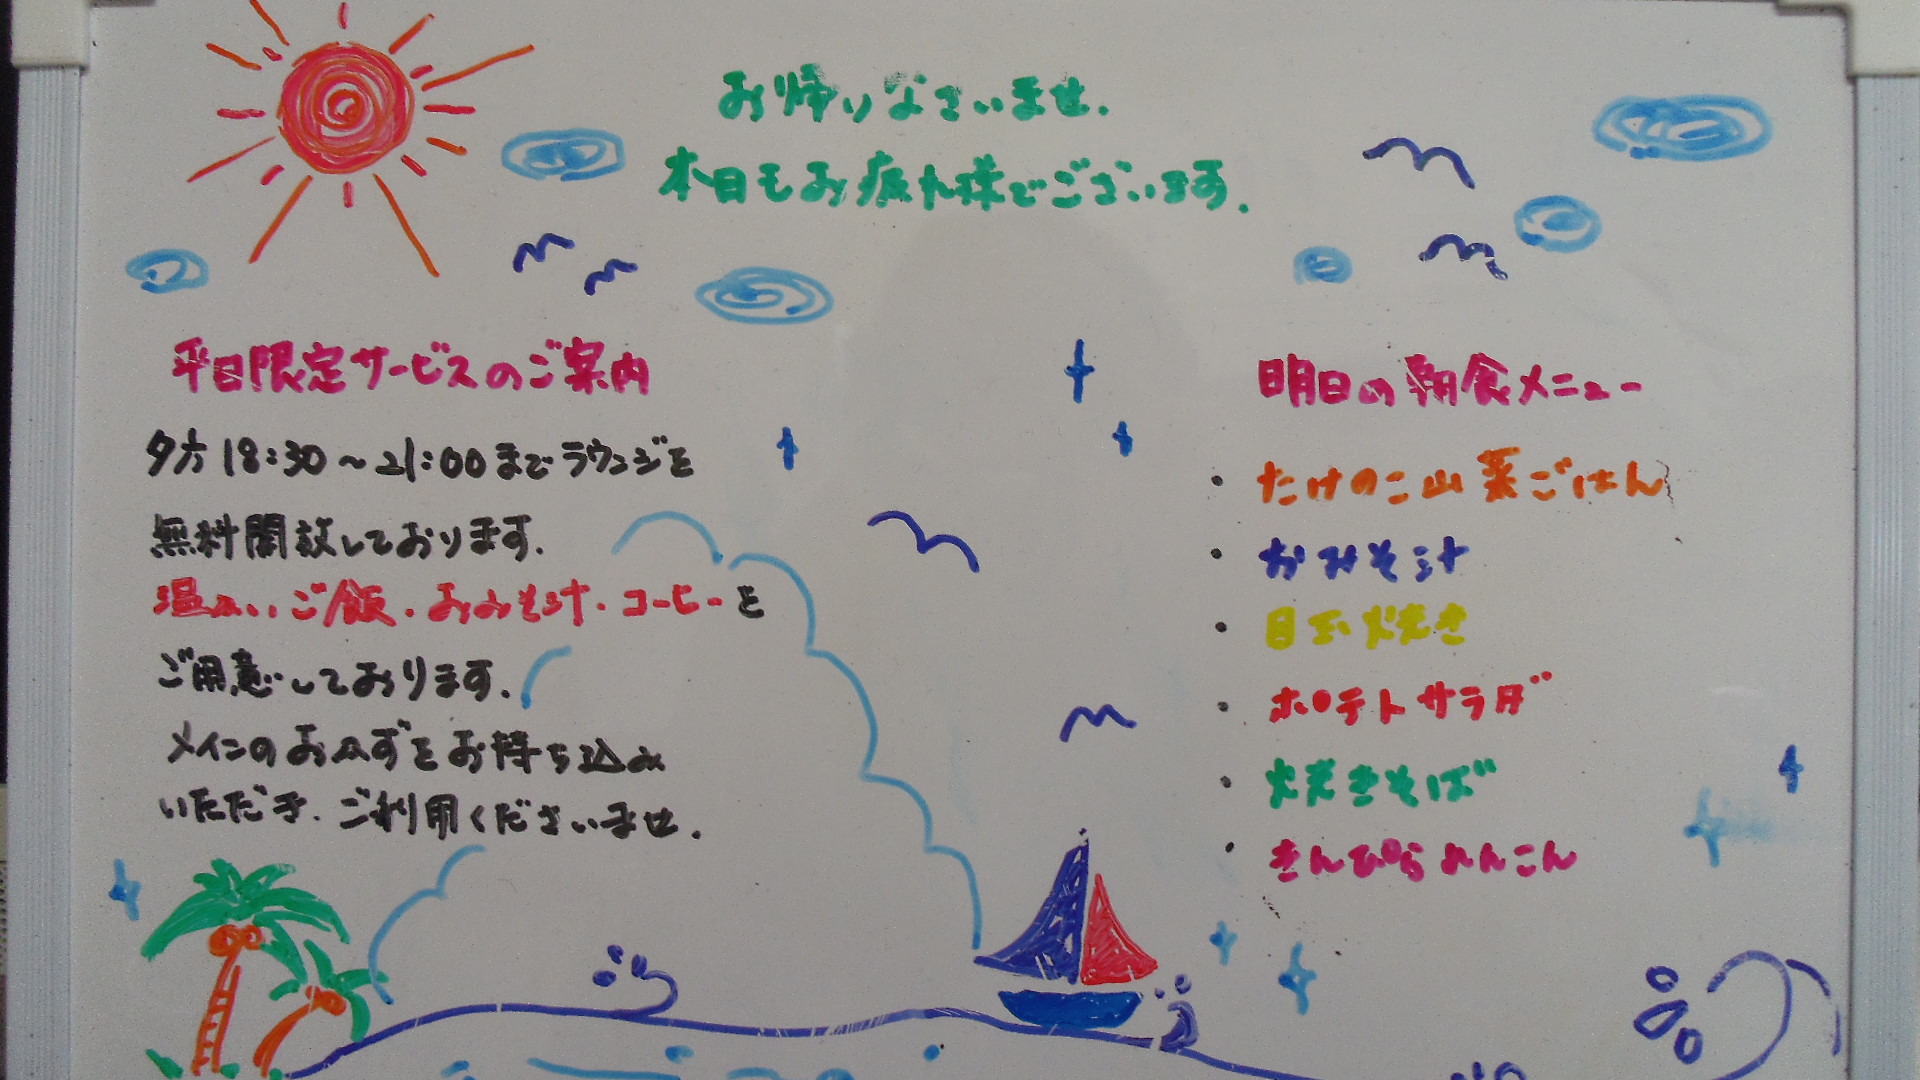 お帰りなさいませ.
本日もお疲れ様でございます.
平日限定サービスのご案内
夕方18:30～21:00までラウンジを
無料開放しております.
温かいご飯・おみそ汁・コーヒーを
ご用意しております.
メインのおかずをお持ち込み
いただき、ご利用くださいませ.
明日の朝食メニュー
・たけのこ山菜ごはん
・おみそ汁
・目玉焼き
・ポテトサラダ
・焼きそば
・きんぴられんこん